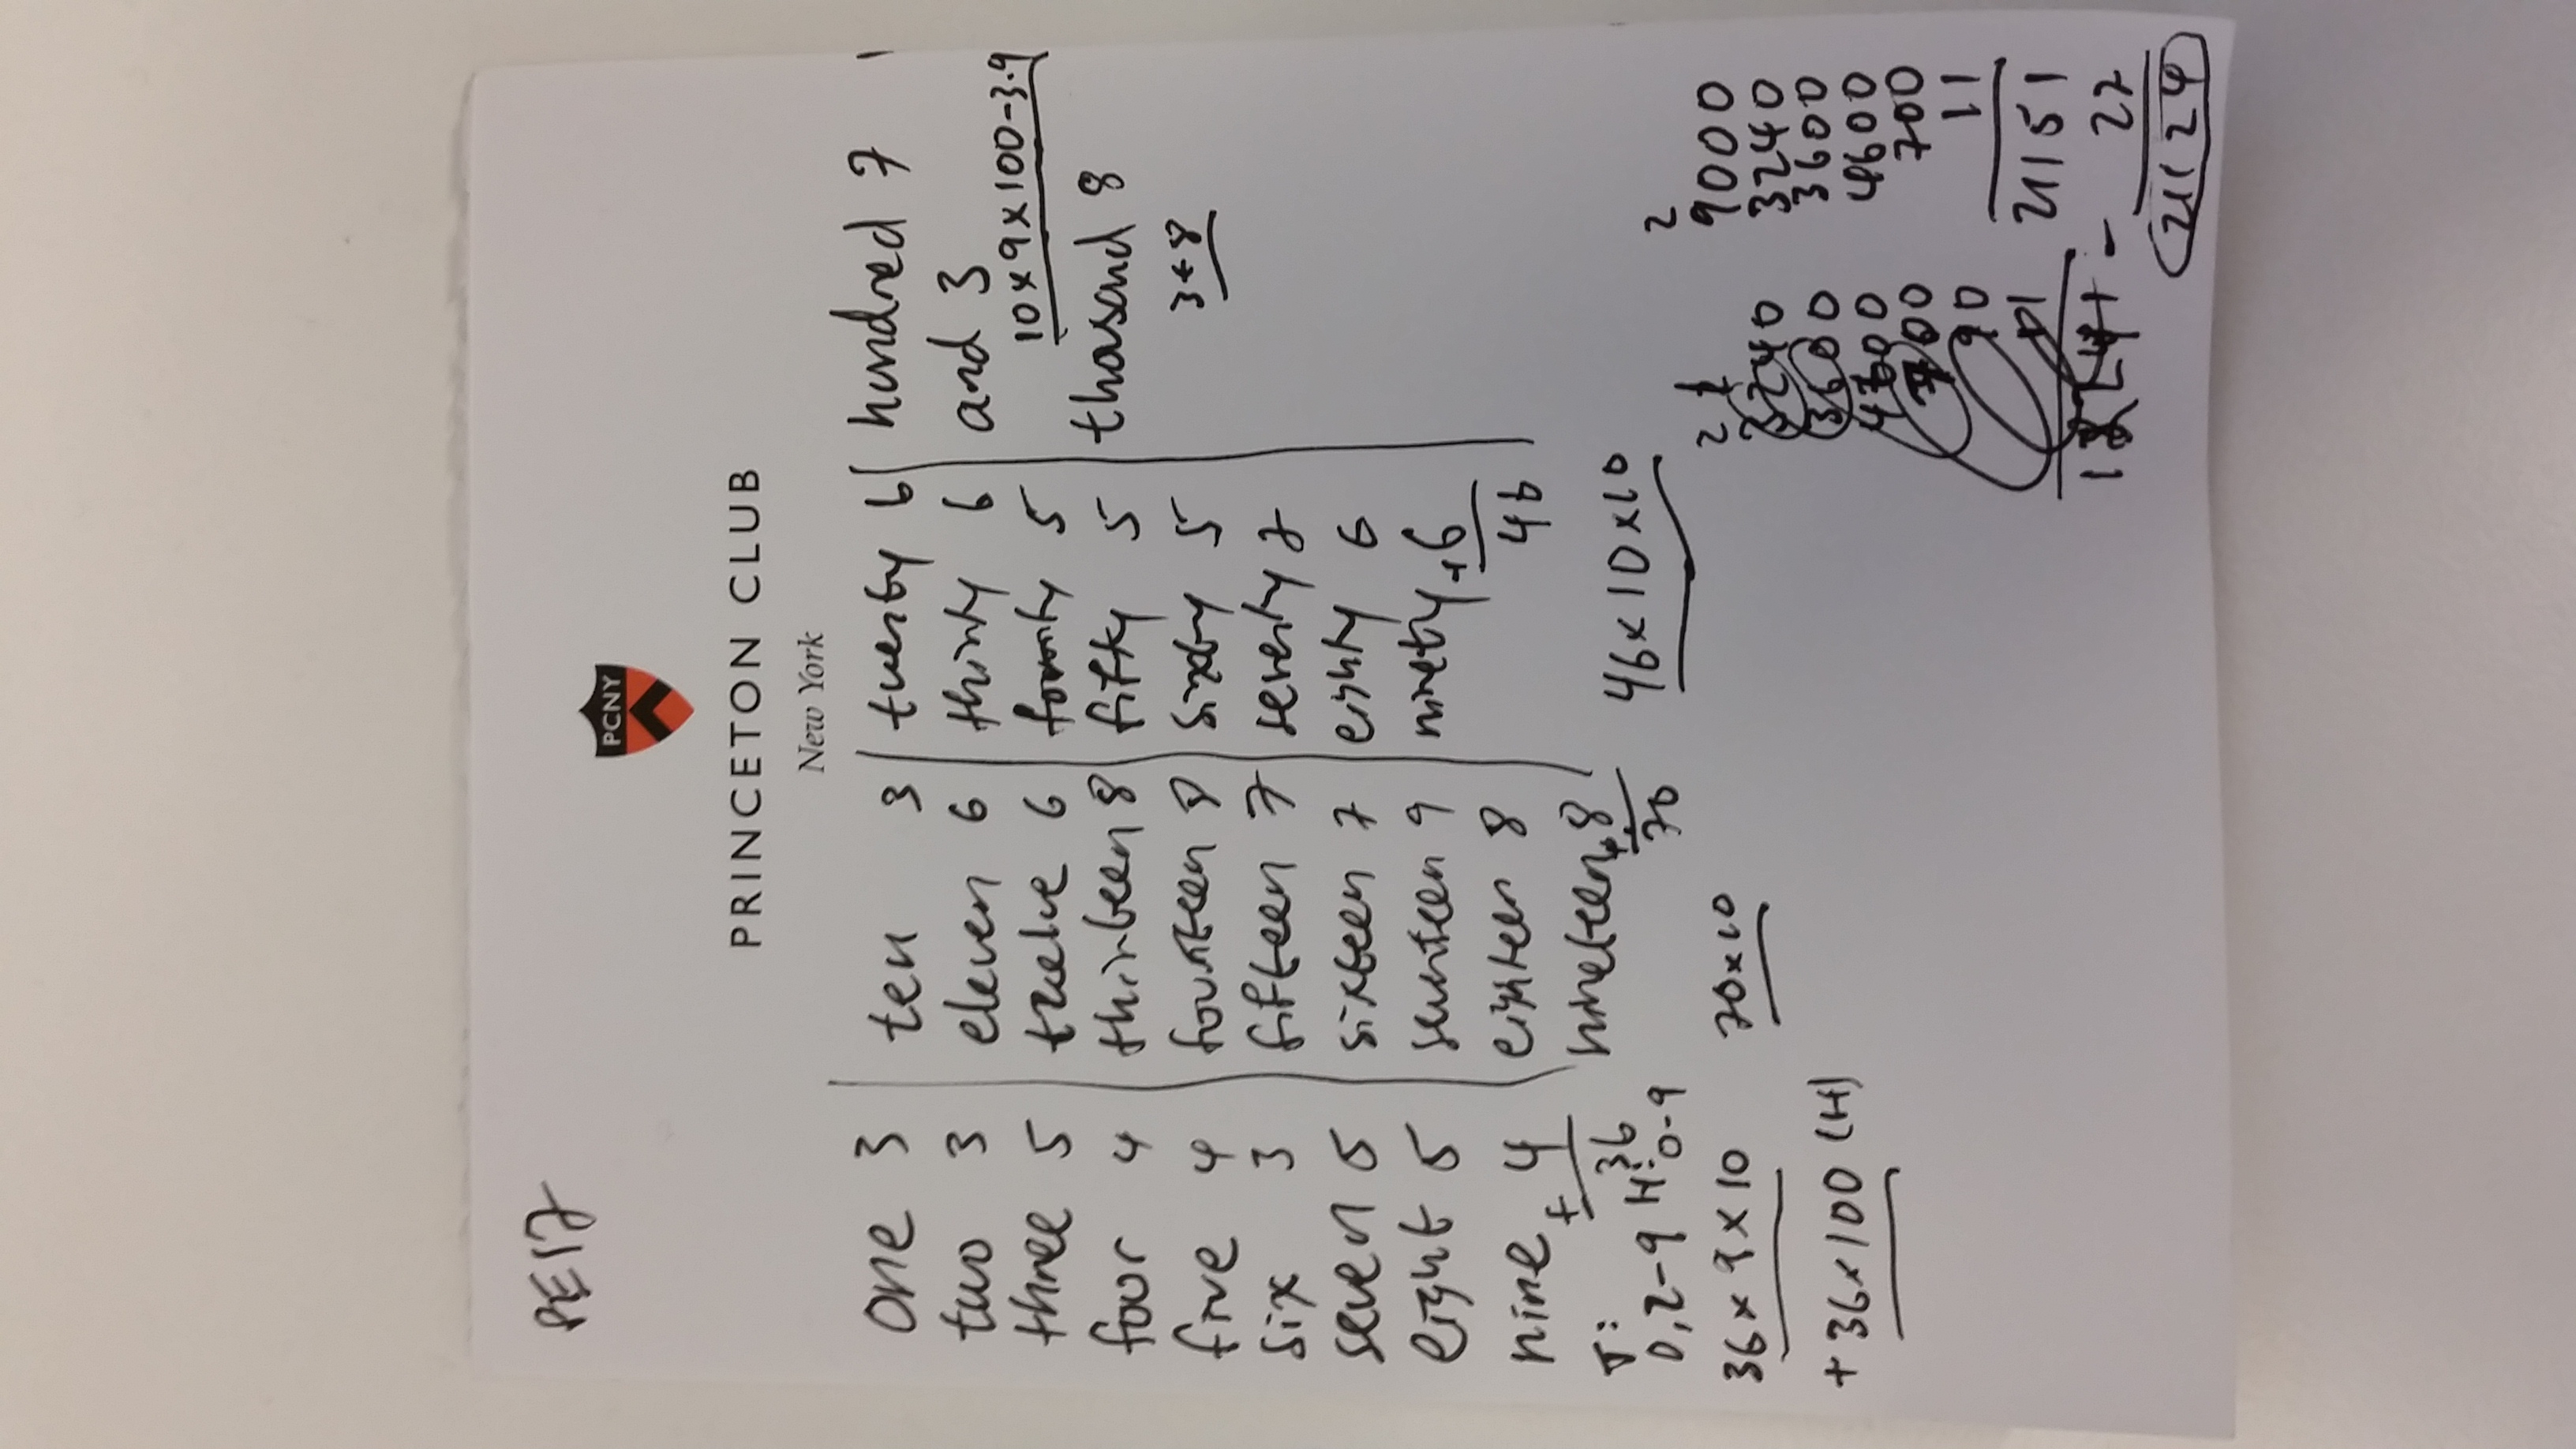 PE17
PCNY
PRINCETON CLUB
New York
one 3
two 3
three 5
four 4
five 4
six 3
seven 5
eight 5
nine + 4
36
T:
0,2-9 H: 0-9
36 x 9 x 10
+ 36 x 100 (H)
ten 3
eleven 6
twelve 6
thirteen 8
fourteen 8
fifteen 7
sixteen 7
seventeen 9
eighteen 8
nineteen + 8
70
70 x 10
twenty 6
thirty 6
5
fifty 5
sixty 5
seventy 7
eighty 6
ninety + 6
46
46 x 10 x 10
hundred 7
and 3
10 x 9 x 100 - 3.9
thousand 8
3 + 8
2
3240
3600
4600
700
90
11
2
9000
3240
3600
4600
700
11
21151
- 27
21124